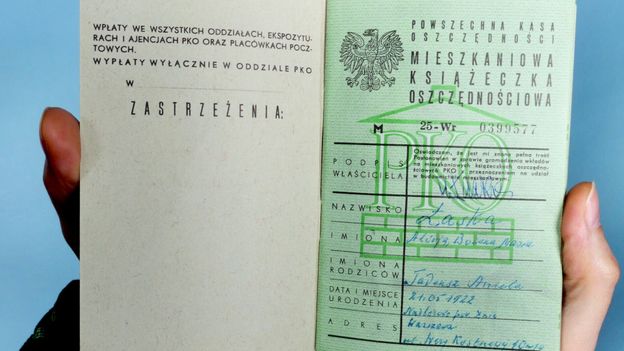 WPŁATY WE WSZYSTKICH ODDZIAŁACH, EKSPOZYTU-
RACH I AJENCJACH PKO ORAZ PLACÓWKACH POCZ-
TOWYCH.
WYPŁATY WYŁĄCZNIE W ODDZIALE PKO
W
ZASTRZEŻENIA:
POWSZECHNA KASA
OSZCZĘDNOŚCI
MIESZKANIOWA
KSIĄŻECZKA
OSZCZĘDNOŚCIOWA
M 25-Wr 0399577
PKO
PODPIS
WŁAŚCICIELA
Oświadczam, że jest mi znana pełna treść
Postanowień w sprawie gromadzenia wkładów
na mieszkaniowych książeczkach oszczędno-
ściowych PKO z przeznaczeniem na udział
w budownictwie mieszkaniowym.
NAZWISKO Łaska
IMIONA Alicja, Bożena
IMIONA
RODZICÓW Tadeusz
DATA I MIEJSCE
URODZENIA 21.05.1922
ADRES Warszawa
ul.